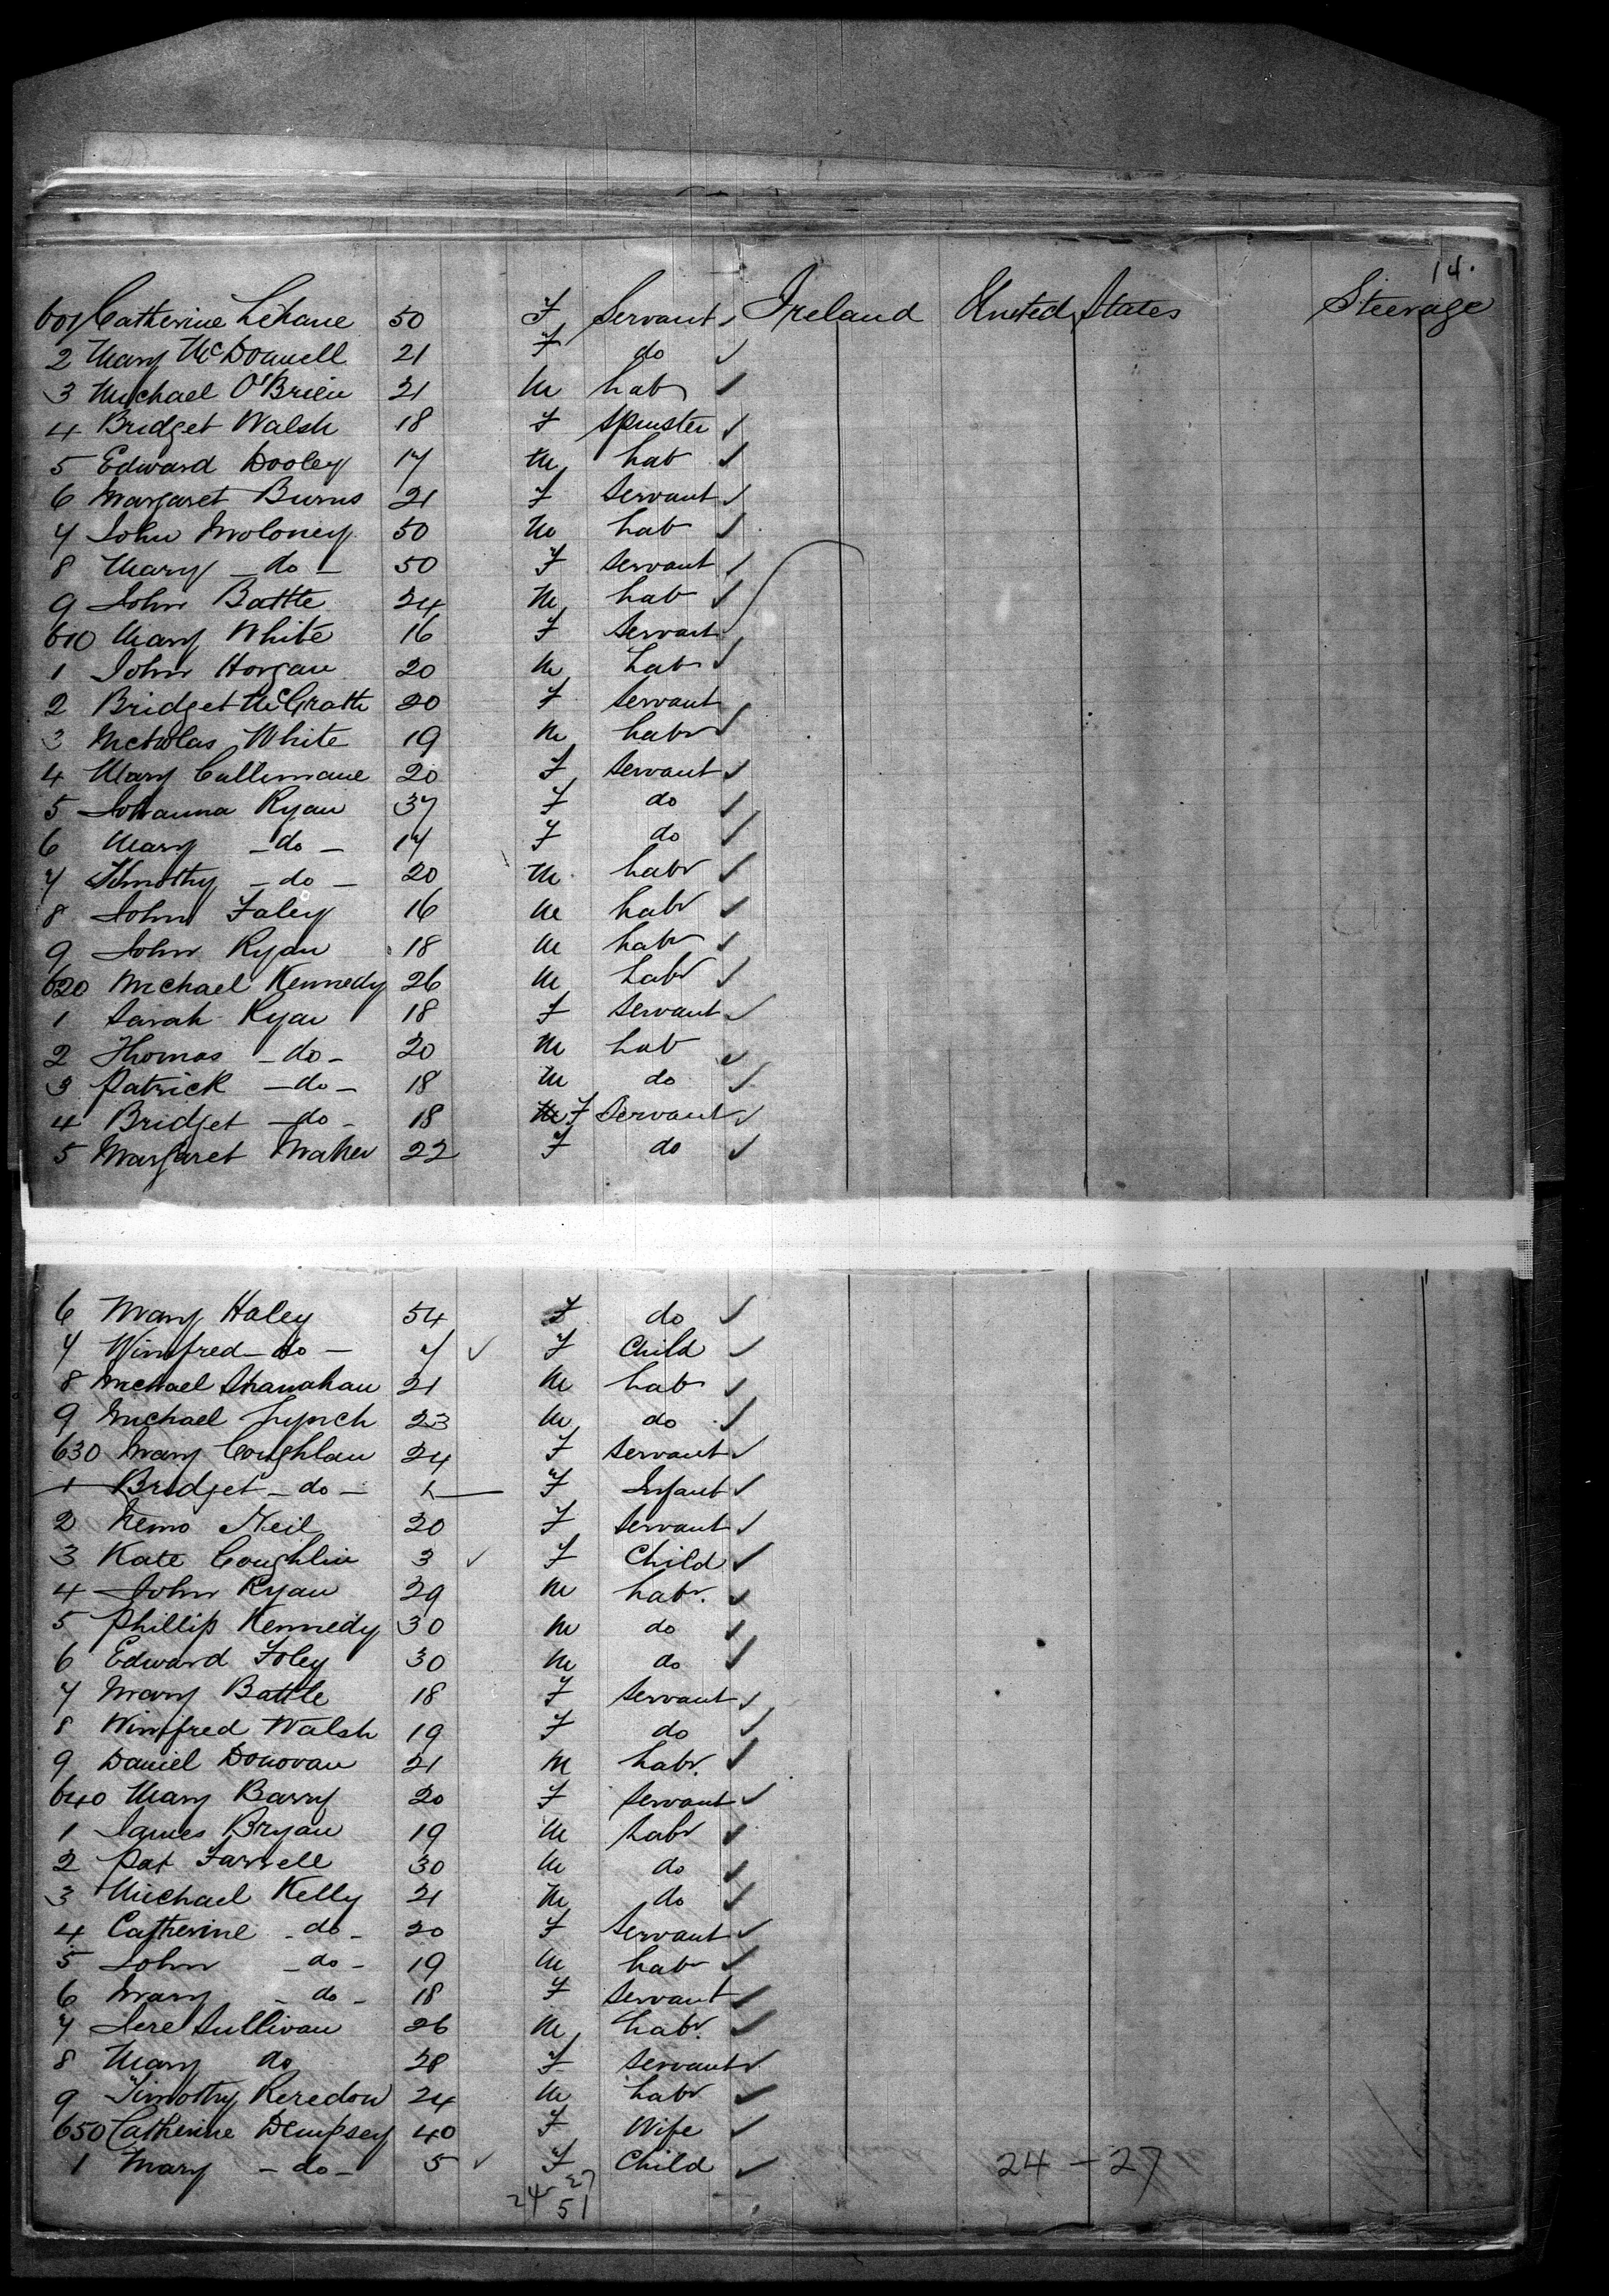 14.
601 Catherine Lehane 50 F Servant Ireland United States Steerage
2 Mary McDonnell 21 F do
3 Michael O'Brien 21 M Lab
4 Bridget Walsh 18 F Spinster
5 Edward Dooley 17 M Lab
6 Margaret Burns 21 F Servant
7 John Moloney 50 M Lab
8 Mary - do - 50 F Servant
9 John Battle 24 M Lab
610 Mary White 16 F Servant
1 John Horgan 20 M Lab
2 Bridget McGrath 20 F Servant
3 Nicholas White 19 M Labr
4 Mary Cullinane 20 F Servant
5 Johanna Ryan 37 F do
6 Mary - do - 17 F do
7 Timothy - do - 20 M Labr
8 John Faley 16 M Labr
9 John Ryan 18 M Labr
620 Michael Kennedy 26 M Labr
1 Sarah Ryan 18 F Servant
2 Thomas - do - 20 M Lab
3 Patrick - do - 18 M do
4 Bridget - do - 18 M F Servant
5 Margaret Maher 22 F do
6 Mary Haley 54 F do
7 Winifred - do - 7 F Child
8 Michael Shanahan 21 M Lab
9 Michael Lynch 23 M do
630 Mary Coughlan 24 F Servant
1 Bridget - do - 1 F Infant
2 Neil 20 F Servant
3 Kate Coughlin 3 F Child
4 John Ryan 29 M Labr.
5 Phillip Kennedy 30 M do
6 Edward Foley 30 M do
7 Mary Battle 18 F Servant
8 Winifred Walsh 19 F do
9 Daniel Donovan 21 M Labr.
640 Mary Barry 20 F Servant
1 James Bryan 19 M Labr
2 Pat Farrell 30 M do
3 Michael Kelly 21 M do
4 Catherine - do - 20 F Servant
5 John - do - 19 M Lab
6 Mary - do - 18 F Servant
7 Jere Sullivan 26 M Labr.
8 Mary do 28 F Servant
9 Timothy 24 M Labr
650 Catherine Dempsey 40 F Wife
1 Mary - do - 5 F Child 24 - 27
24 27
51